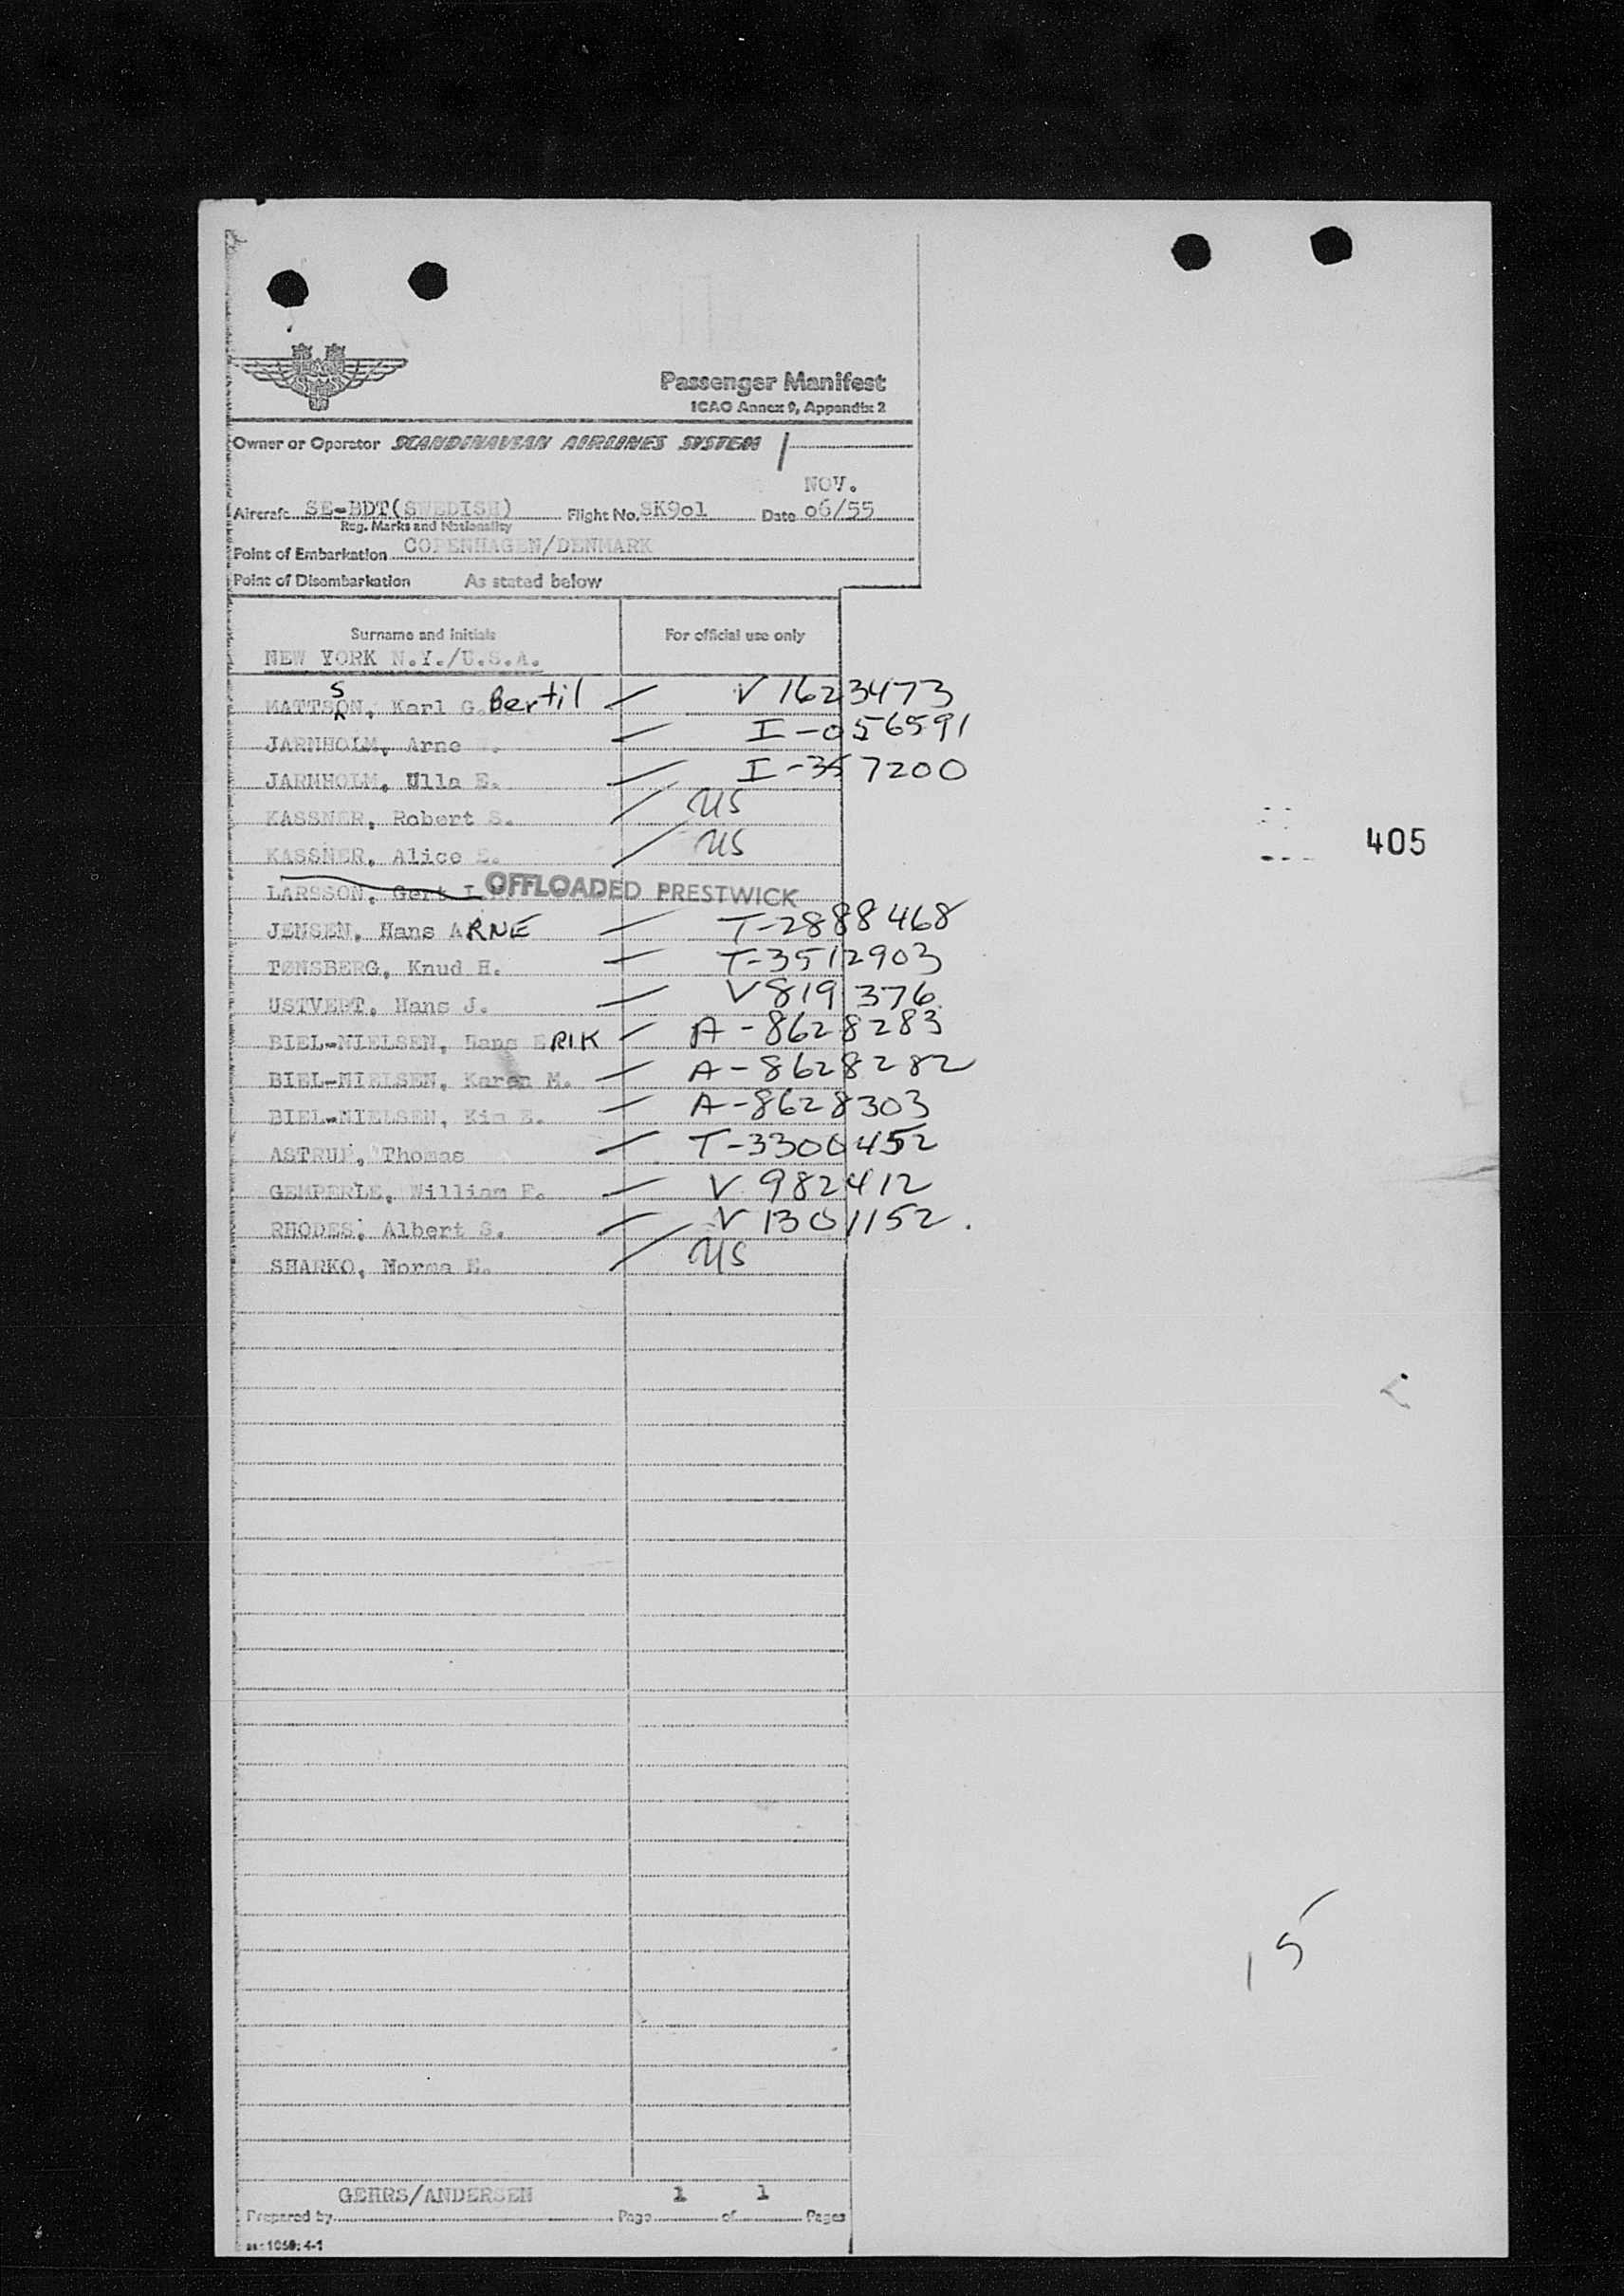 Passenger Manifest
ICAO Annex 9, Appendix 2
Owner or Operator SCANDINAVIAN AIRLINES SYSTEM
NOV.
Aircraft SE-BDT(SWEDISH) Flight No. SK901 Date 06/55
Reg. Marks and Nationality
Point of Embarkation COPENHAGEN/DENMARK
Point of Disembarkation As stated below
Surname and Initials For official use only
NEW YORK N.Y./U.S.A.
S
MATTSON, Karl G. Bertil V 1623473
JARNHOLM, Arne I-056591
JARNHOLM, Ulla E. I-357200
KASSNER, Robert S. US
KASSNER, Alice E. US
405
LARSSON, Gert I OFFLOADED PRESTWICK
JENSEN, Hans ARNE T-2888468
TØNSBERG, Knud H. T-3512903
USTVEDT, Hans J. V 819376
BIEL-NIELSEN, Hans ERIK A-8628283
BIEL-NIELSEN, Karen M. A-8628282
BIEL-NIELSEN, Kim E. A-8628303
ASTRUP, Thomas T-3300452
GEMPERLE, William F. V 982412
RHODES, Albert S. V 1301152.
SHARKO, Norma E. US
15
GEHRS/ANDERSEN 1 1
Prepared by Page of Pages